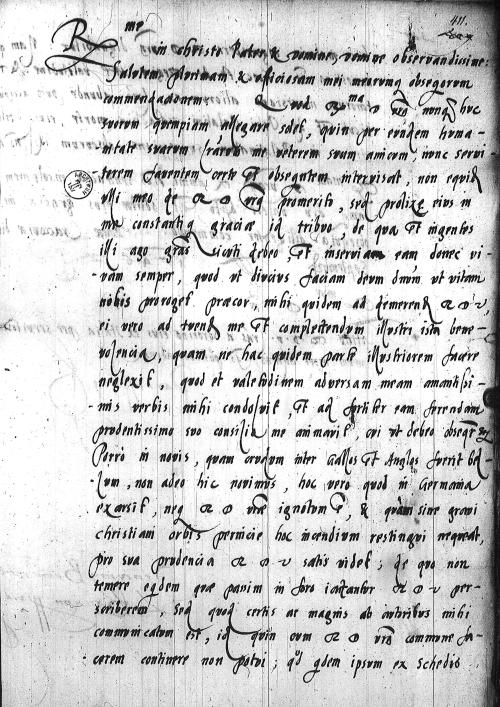 411.
R me in christo Pater & domine domine observandissime:
Salutem plurimam & officiosam mei mearumq obsequiorum
commendationem. Quod R ma D vra nunq huc
suorum quempiam allegare solet, quin per eundem huma-
nitate suarum me veterem suum amicum, nunc servi-
torem faventem certe et obsequentem intervisat, non equid
ulli meo de R D vra promerito, sed prolixe eius in
me constantiq gratiae id tribuo, de qua et ingentes
illi ago gras sicuti debeo, et inserviam eam donec vi-
vam semper, quod ut diutius faciam deum dnum ut vitam
nobis proroget, praecor, mihi quidem ad demerend R D V,
ei vero ad tuend me et complectendum illustri ista bene-
volencia, quam ne hac quidem parte illustriorem facere
neglexit, quod et valetudinem adversam meam amantissi-
mis verbis mihi condoluit, et ad fortiter eam ferendam
prudentissimo suo consilio me animavit, cui ut debeo obseqr
Porro in novis, quam crudum inter Gallos et Anglos fuerit bel-
lum, non adeo hic novimus, hoc vero quod in Germania
exarsit, neq R D vrae ignotum e, & quam sine gravi
christiani orbis pernicie hoc incendium restingui nequeat,
pro sua prudencia R D V satis videt; de quo non
temere eadem quae passim in foro iactantur R D V per-
scriberem, sed quod certis ac magnis ab autoribus mihi
communicatum est, id quin cum R D vra commune fa-
cerem continere non potui; qd qdem ipsum ex schedis